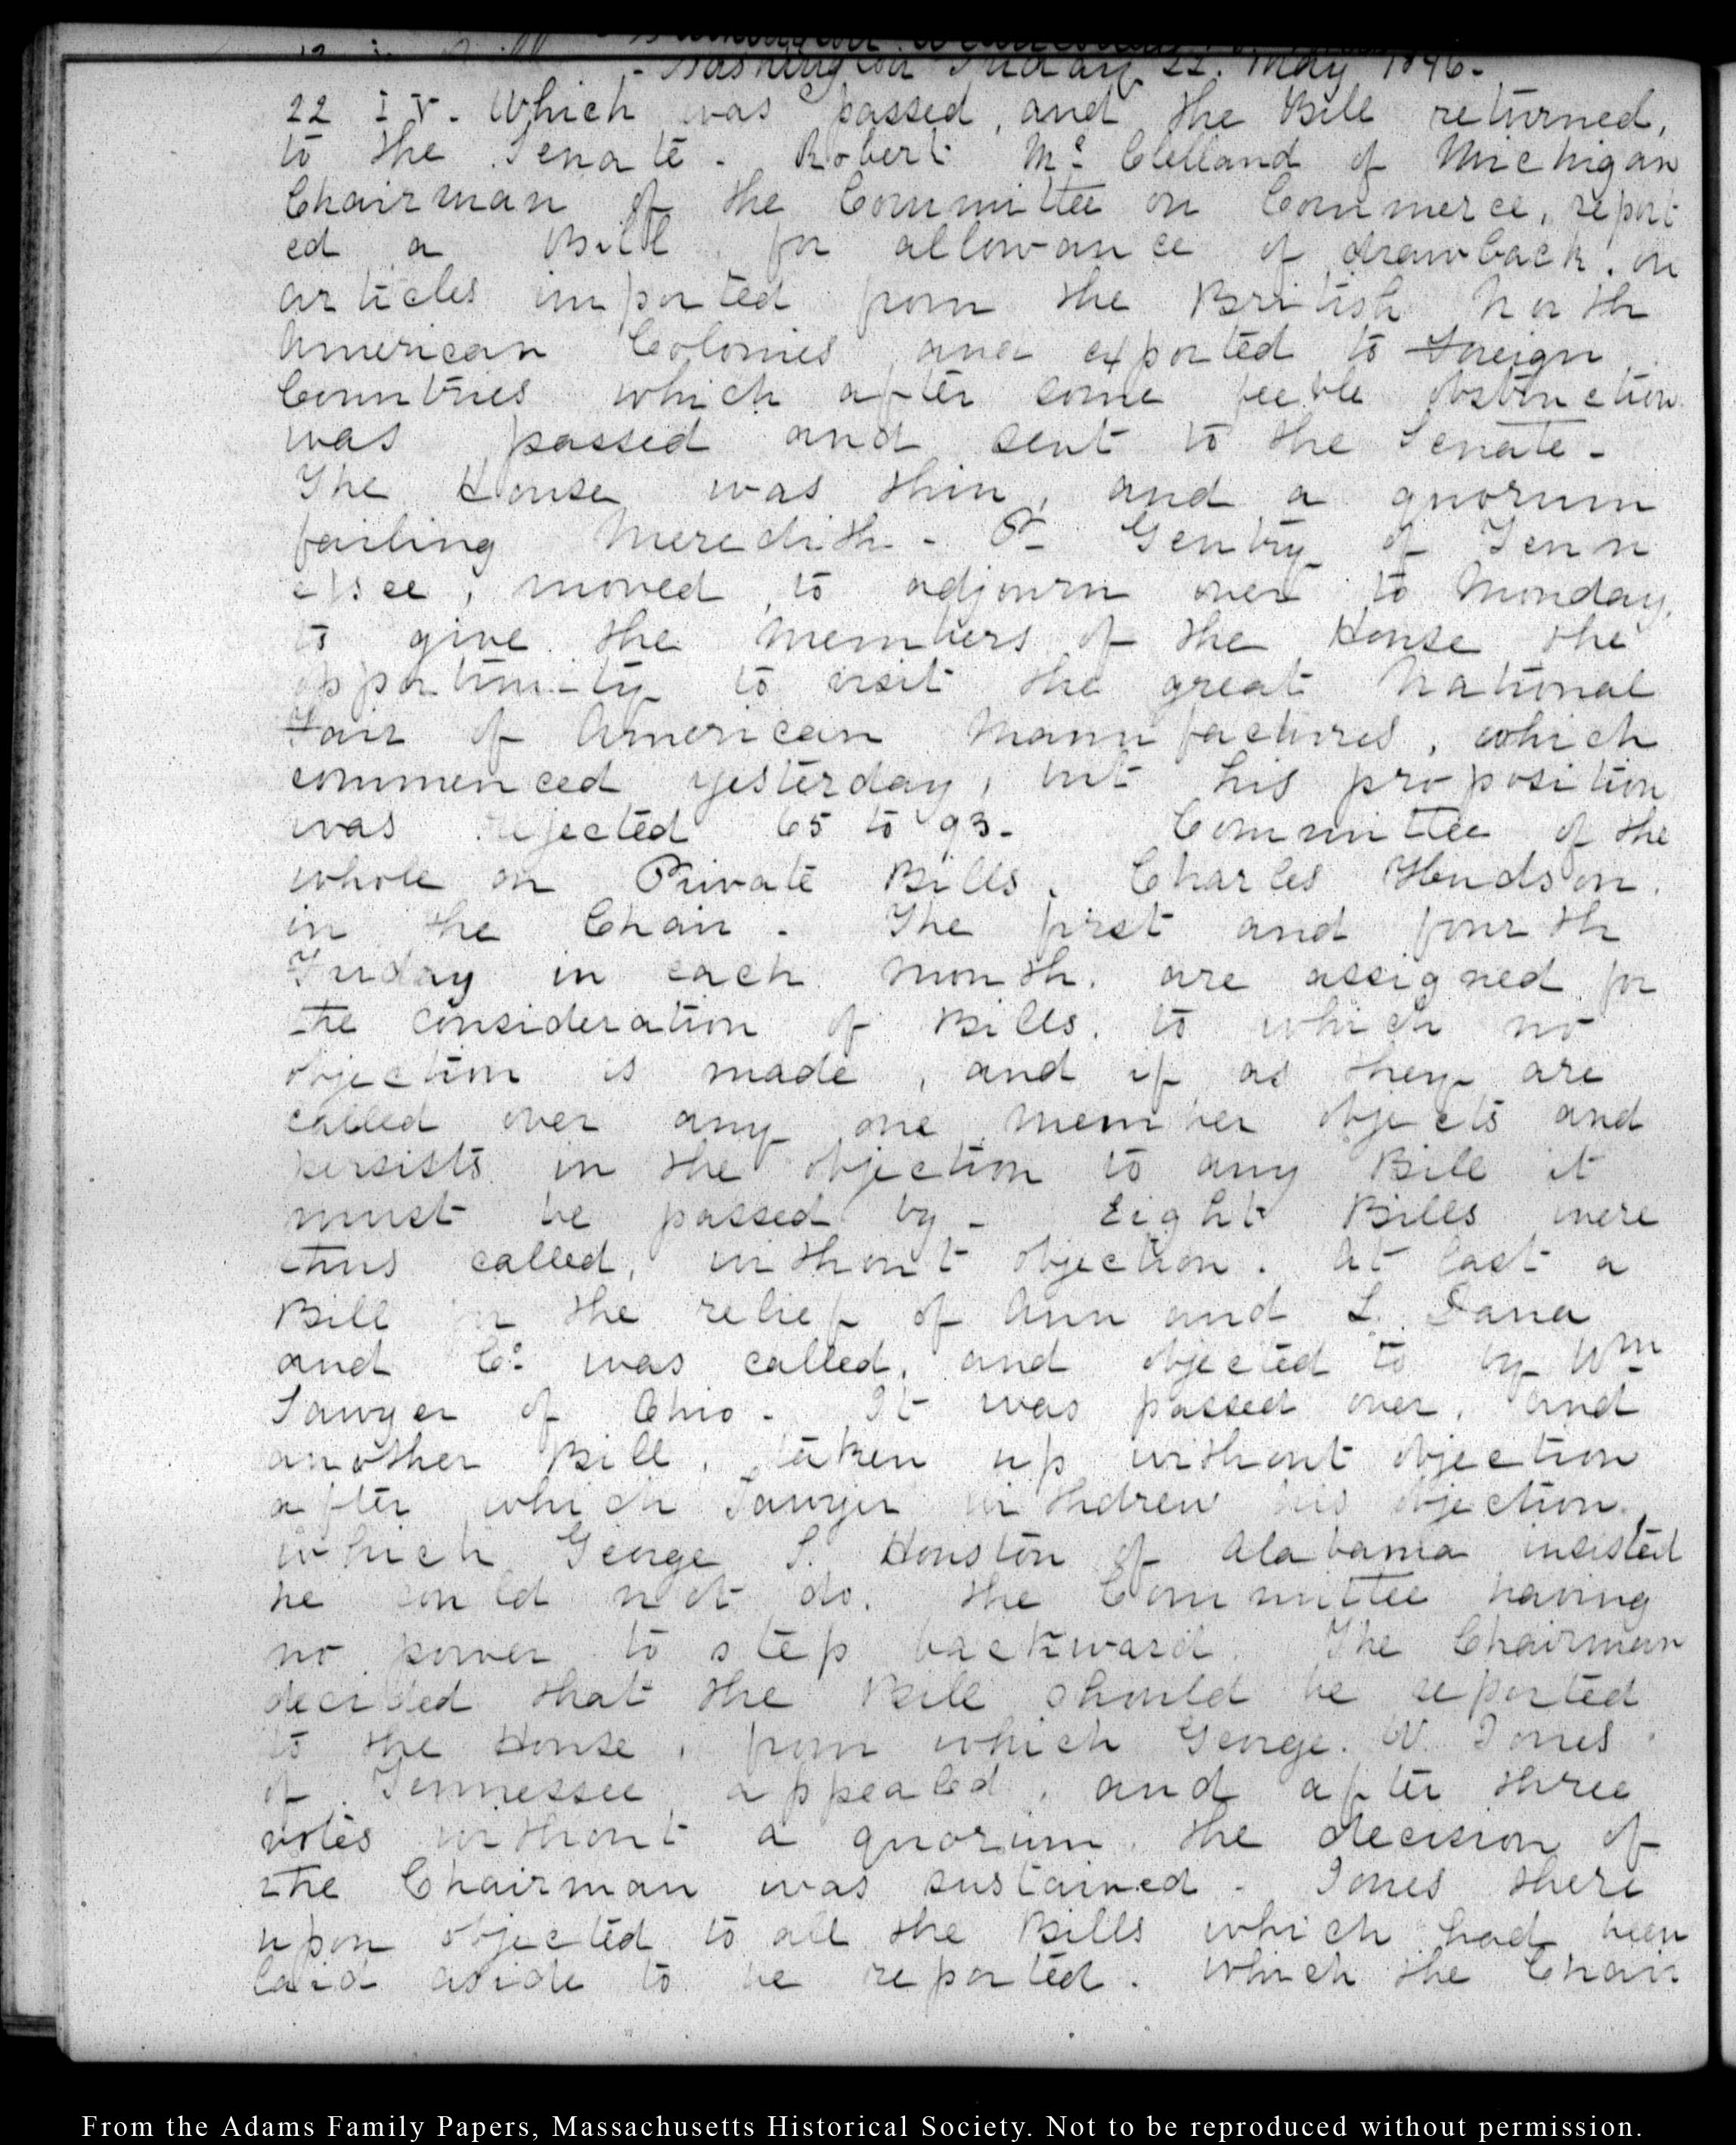 Washington Friday 22. May 1846.
22 IV. Which was passed, and the Bill returned,
to the Senate. Robert Mc Clelland of Michigan
Chairman of the Committee on Commerce, report
ed a Bill for allowance of drawback, on
articles imported from the British North
American Colonies and exported to Foreign
Countries which after some feeble obstruction
was passed and sent to the Senate-
The House was thin, and a quorum
failing Meredith- P- Gentry of Tenn
essee, moved, to adjourn over to Monday,
to give the members of the House the
opportunity to visit the great National
Fair of American Manufactures, which
commenced yesterday, but his proposition
was rejected 65 to 93- Committee of the
whole on Private Bills. Charles Hudson.
in the Chair- The first and fourth
Friday in each month, are assigned for
the consideration of Bills, to which no
objection is made, and if as they are
called over any one member objects and
persists in the objection to any Bill it
must be passed by- Eight Bills were
thus called, without objection. At last a
Bill for the relief of Ann and L. Dana
and Co. was called, and objected to by Wm
Sawyer of Ohio- It was passed over, and
another Bill, taken up without objection
after which Sawyer withdrew his objection,
which George S. Houston of Alabama insisted
he could not do. the Committee having
no power to step backward. The Chairman
decided that the Bill should be reported
to the House, from which George. W. Jones
of Tennessee appealed, and after three
votes without a quorum, the decision of
the Chairman was sustained- Jones there
upon objected to all the Bills which had been
laid aside to be reported. which the Chair
From the Adams Family Papers, Massachusetts Historical Society. Not to be reproduced without permission.